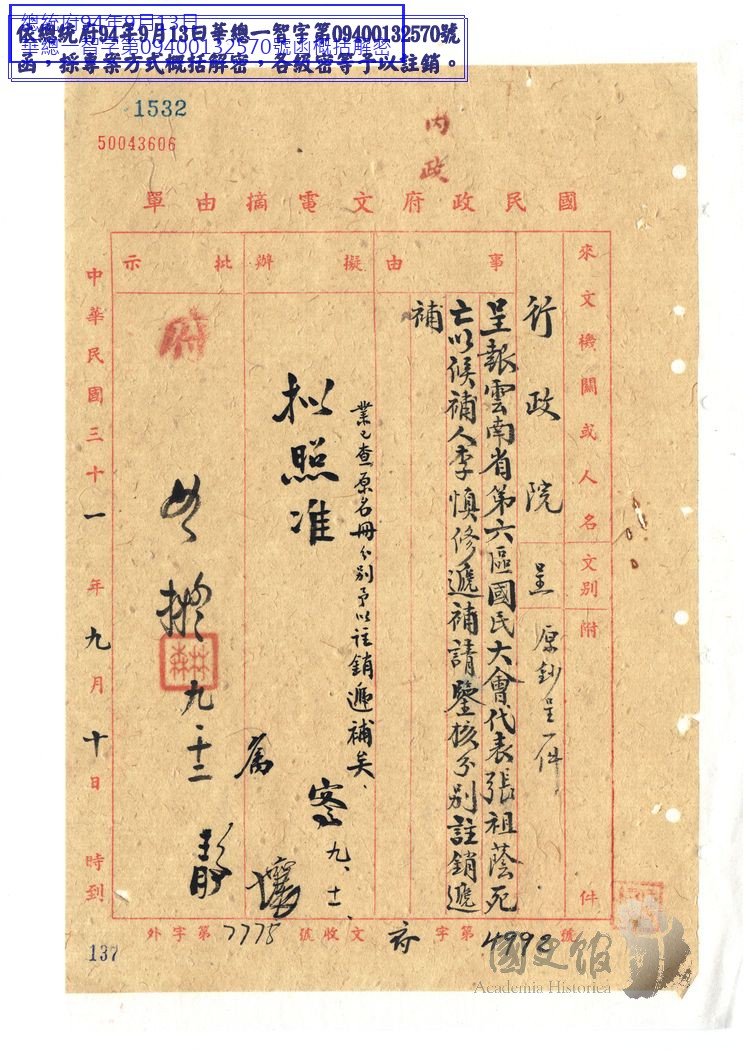 總統府94年9月13日
華總一智字第09400132570號函概括解密
依總統府94年9月13日華總一智字第09400132570號
函,採專案方式概括解密,各級密等予以註銷。
1532
50043606
內政
國民政府文電摘由單
來文機關或人名
文別
附件
行政院
呈
原鈔呈一件
事由
呈報雲南省第六區國民大會代表張祖蔭死
亡以候補人李慎修遞補請鑒核分別註銷遞
補
擬辦
業已查原名冊分別予以註銷遞補矣、
拟照准
九、十一、
批示
府
如擬
九、十二
中華民國三十一年九月十日時到
外字第7775號
收文府字第4998號
137
國史館
Academia Historica